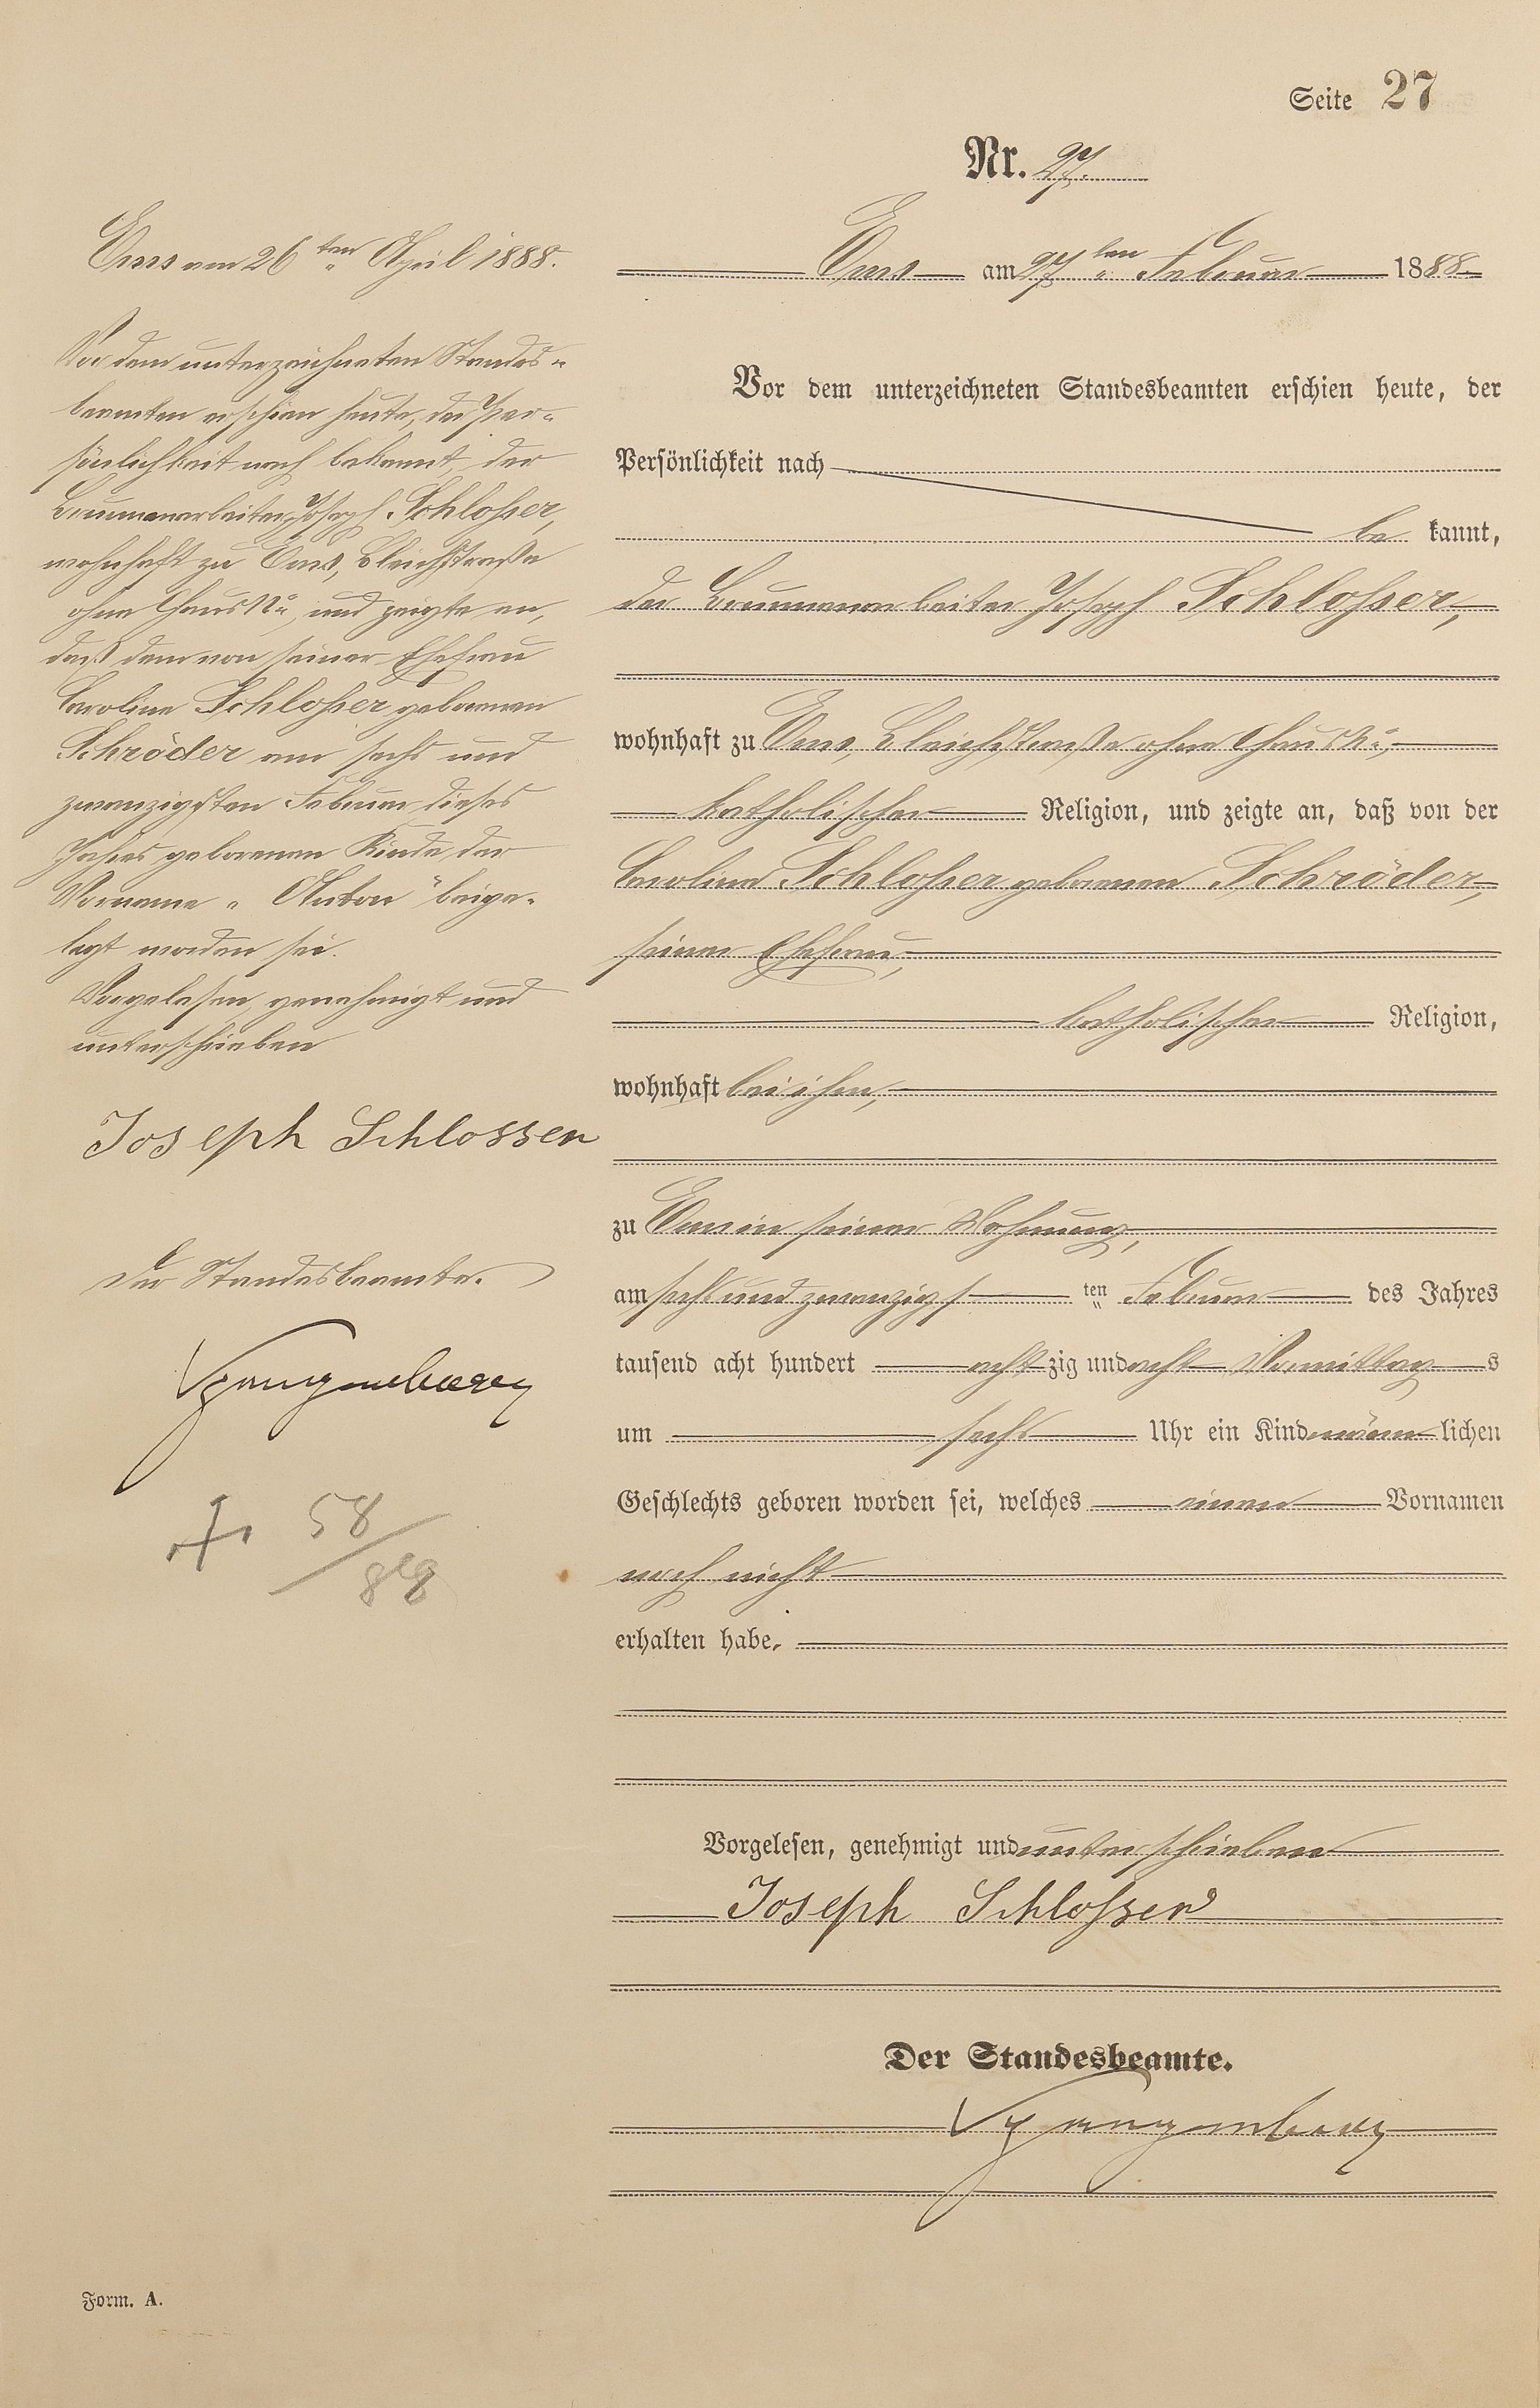 Seite 27
Nr. 27.
Ems am 27ten Februar 1888.
Vor dem unterzeichneten Standesbeamten erschien heute, der
Persönlichkeit nach
be kannt,
der Brunnenarbeiter Joseph Schlosser,
wohnhaft zu Ems, Bleichstraße ohne Haus No,
katholischer Religion, und zeigte an, daß von der
Caroline Schlosser geborenen Schröder,
seiner Ehefrau,
katholischer Religion,
wohnhaft bei ihm,
zu Ems in seiner Wohnung,
am sechs und zwanzigsten Februar des Jahres
tausend acht hundert achtzig und acht Vormittags
um sechs Uhr ein Kind männlichen
Geschlechts geboren worden sei, welches einen Vornamen
noch nicht
erhalten habe.
Vorgelesen, genehmigt und unterschrieben
Joseph Schlosser
Der Standesbeamte.
Ems am 26ten April 1888.
Vor dem unterzeichneten Standes-
beamten erschien heute, der Per-
sönlichkeit nach bekannt, der
Brunnenarbeiter Joseph Schlosser,
wohnhaft zu Ems, Bleichstraße
ohne Haus No, und zeigte an,
daß dem von seiner Ehefrau
Caroline Schlosser geborenen
Schröder am sechs und
zwanzigsten Februar dieses
Jahres geborenen Kinde der
Vorname "Anton" beige-
legt worden sei.
Vorgelesen, genehmigt und
unterschrieben
Joseph Schlosser
Der Standesbeamte.
+ 58/88
Form. A.